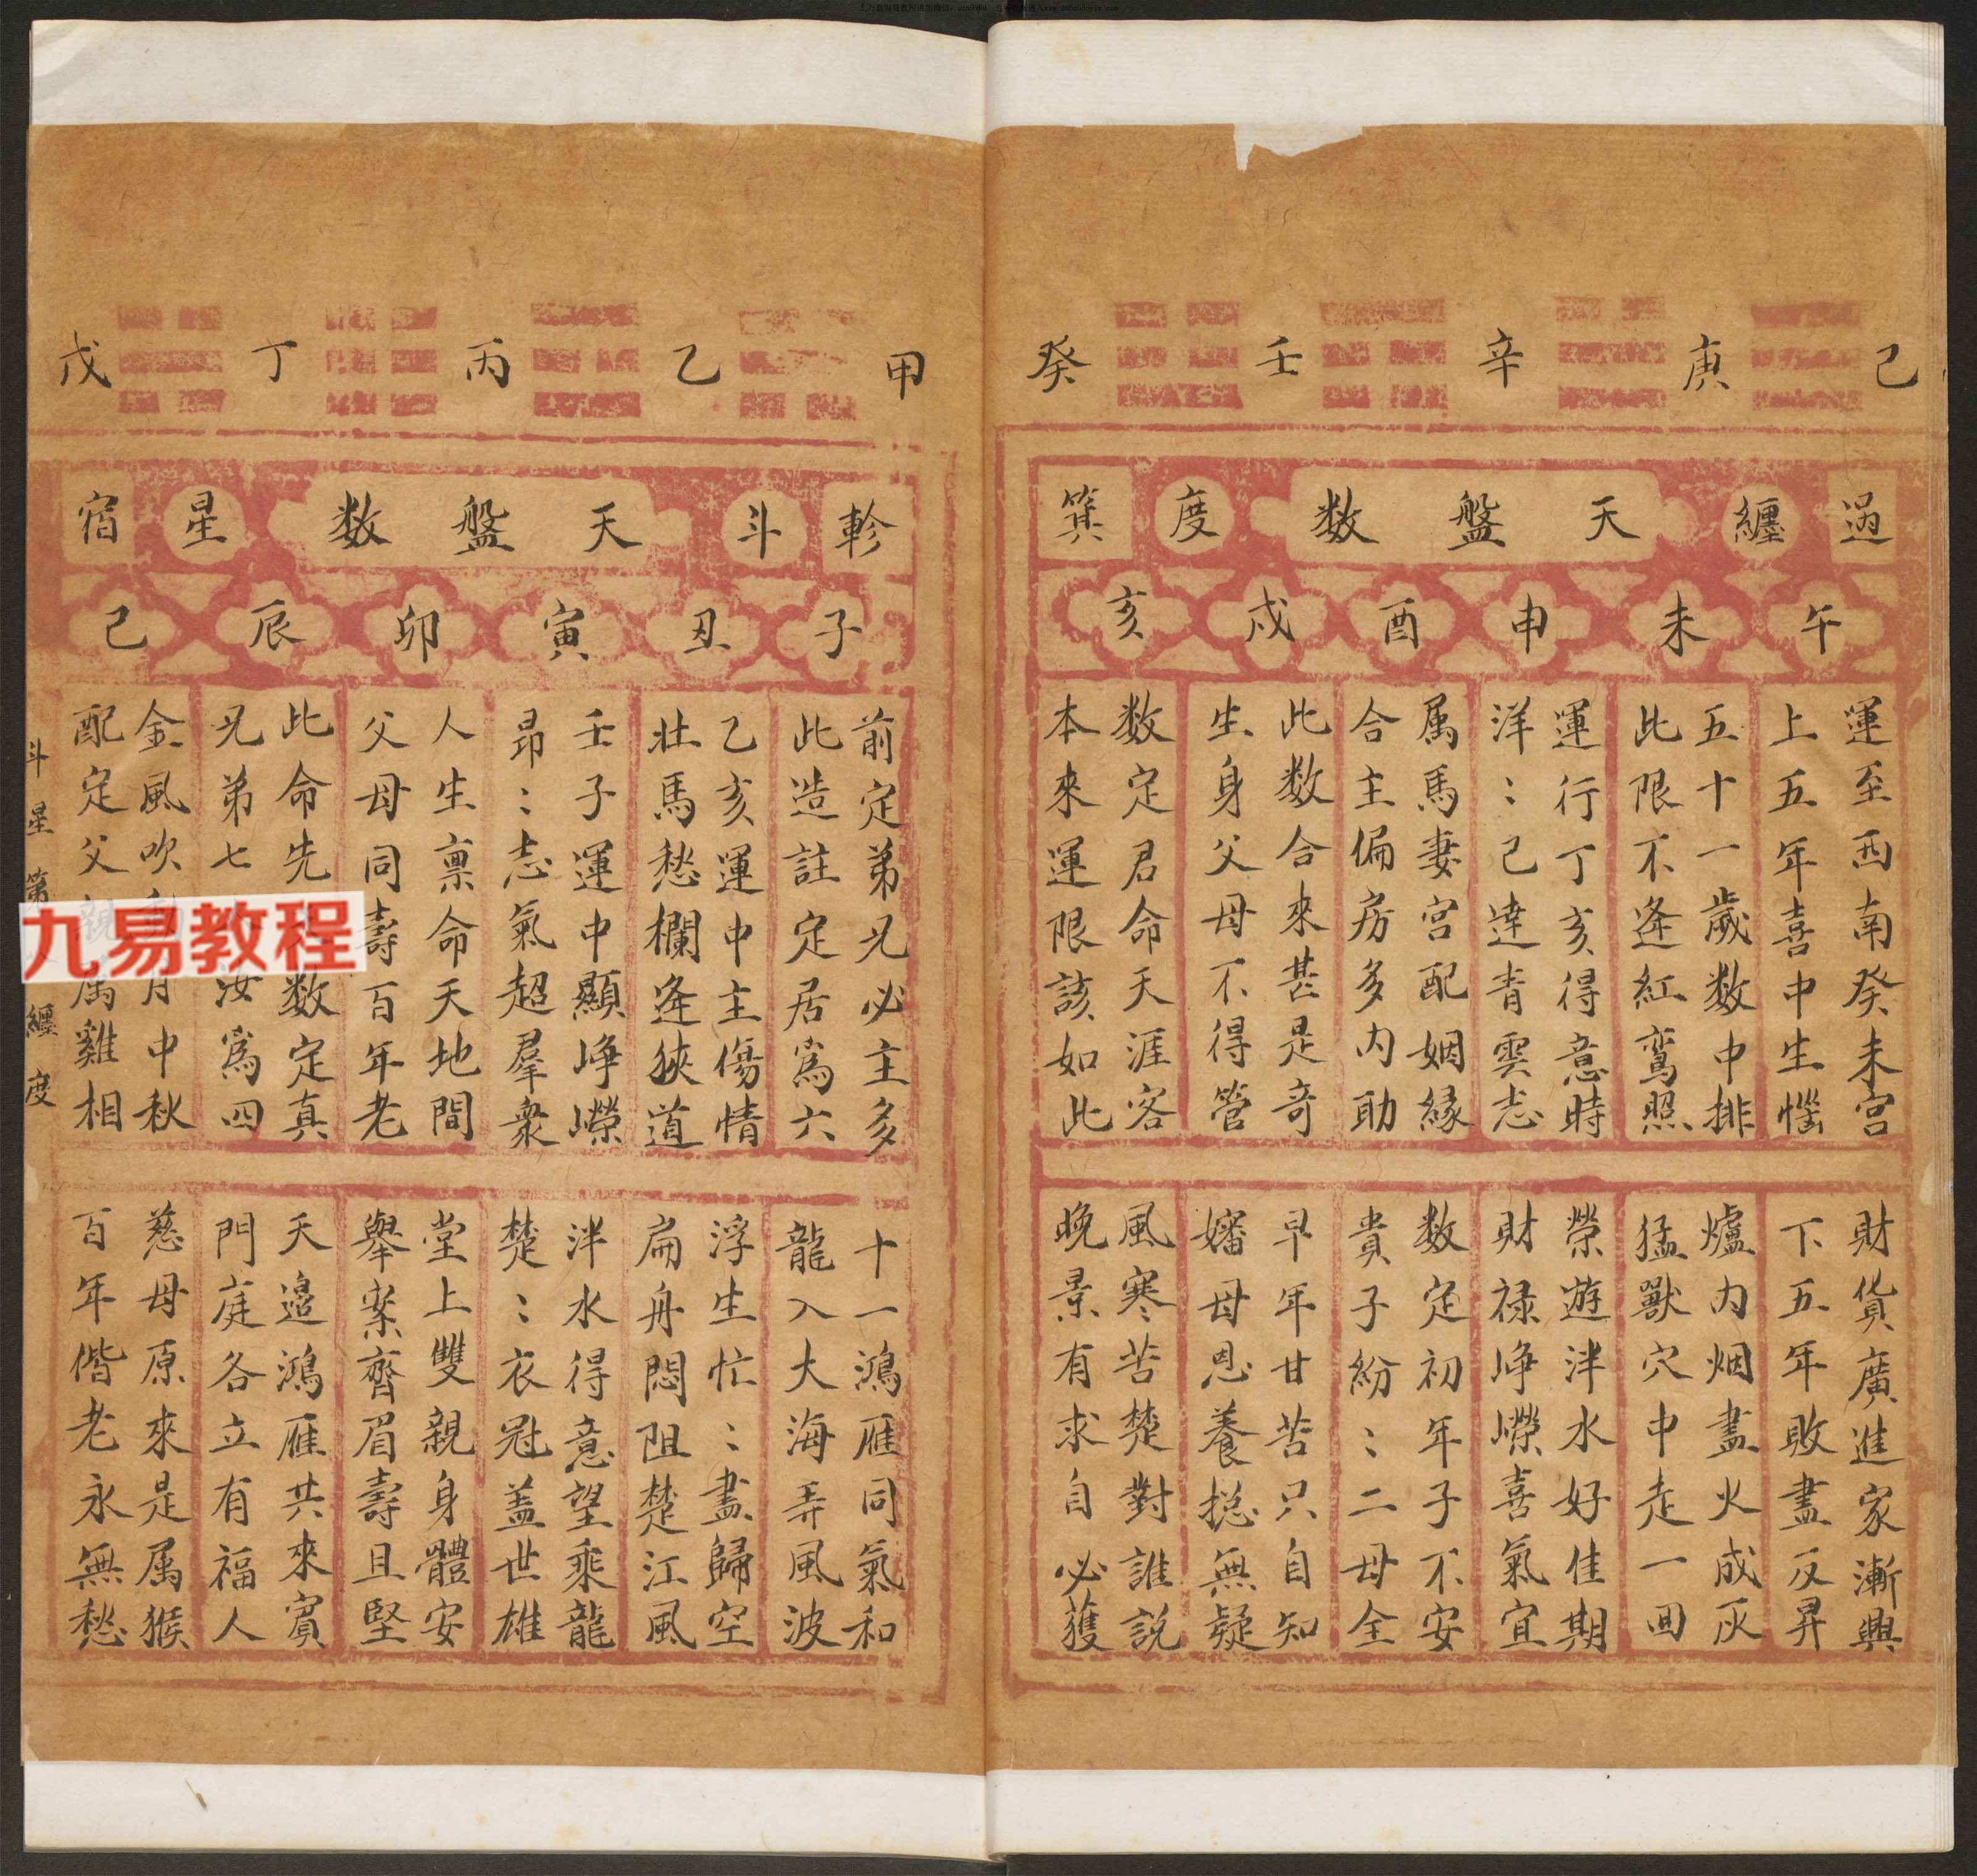 己 庚 辛 壬 癸
過 纏 天 盤 数 度 箕
午 未 申 酉 戌 亥
運至西南癸未宮
上五年喜中生惱
五十一歲数中排
此限不逢紅鸞照
運行丁亥得意時
洋〻已達青雲志
属馬妻宮配姻緣
合主偏房多內助
此数合來甚是奇
生身父母不得管
数定君命天涯客
本來運限該如此
財貨廣進家漸興
下五年敗盡反昇
爐內烟盡火成灰
猛獸穴中走一回
榮遊泮水好佳期
財禄崢嶸喜氣宜
数定初年子不安
貴子紛〻二母全
早年甘苦只自知
嬸母恩養揔無疑
風寒苦楚對誰說
晚景有求自必獲
甲 乙 丙 丁 戊
軫 斗 天 盤 数 星 宿
子 丑 寅 卯 辰 巳
前定弟兄必主多
此造註定居為六
乙亥運中主傷情
壯馬愁欄逢狹道
壬子運中顯崢嶸
昂〻志氣超羣衆
人生禀命天地間
父母同壽百年老
此命先数定真
兄弟七汝為四
金風吹動月中秋
配定父親属雞相
十一鴻雁同氣和
龍入大海弄風波
浮生忙〻盡歸空
扁舟悶阻楚江風
泮水得意望乘龍
楚〻衣冠蓋世雄
堂上雙親身體安
舉案齊眉壽且堅
天邉鴻雁共來賓
門庭各立有福人
慈母原來是属猴
百年偕老永無愁
斗星第 纏度
九易教程